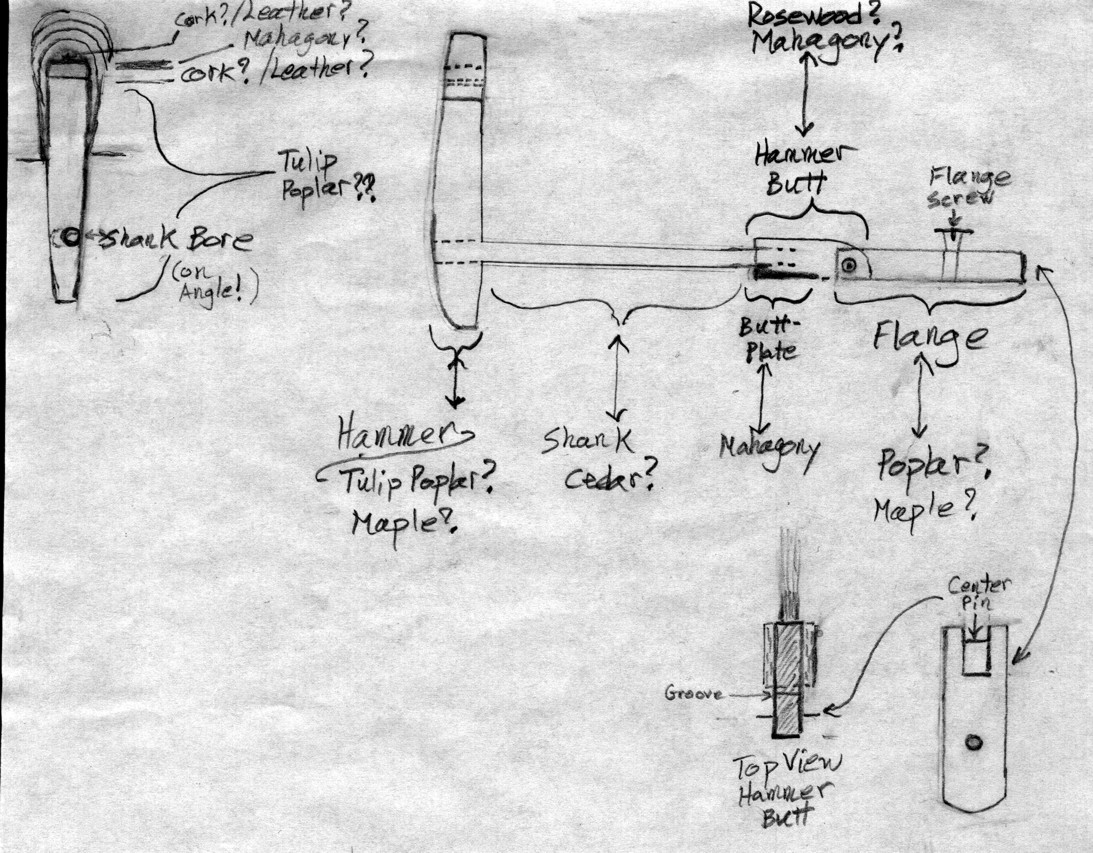 Cork?/Leather?
Mahagony?
Cork?/Leather?
Tulip
Poplar??
Shank Bore
(on
Angle!)
Rosewood?
Mahagony?
Hammer
Butt
Flange
Screw
Butt-
Plate
Flange
Hammer
Tulip Poplar?
Maple?
Shank
Cedar?
Mahagony
Poplar?
Maple?
Center
Pin
Groove
Top View
Hammer
Butt